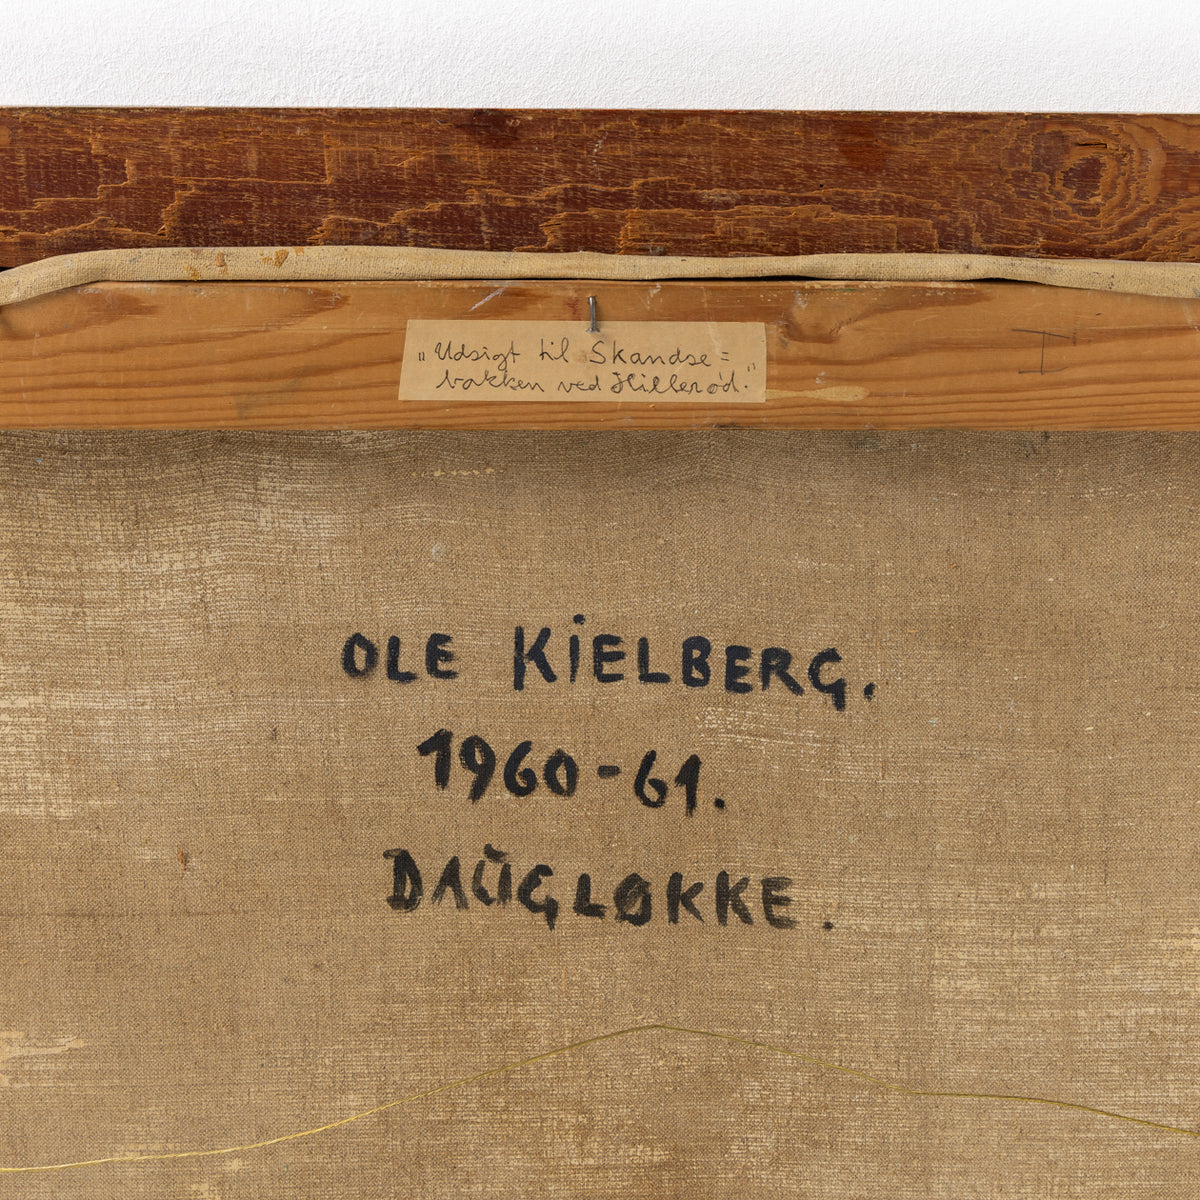 „Udsigt til Skandse=
bakken ved Hillerød."
I
OLE KiELBERG.
1960-61.
DAŬGLØKKE.